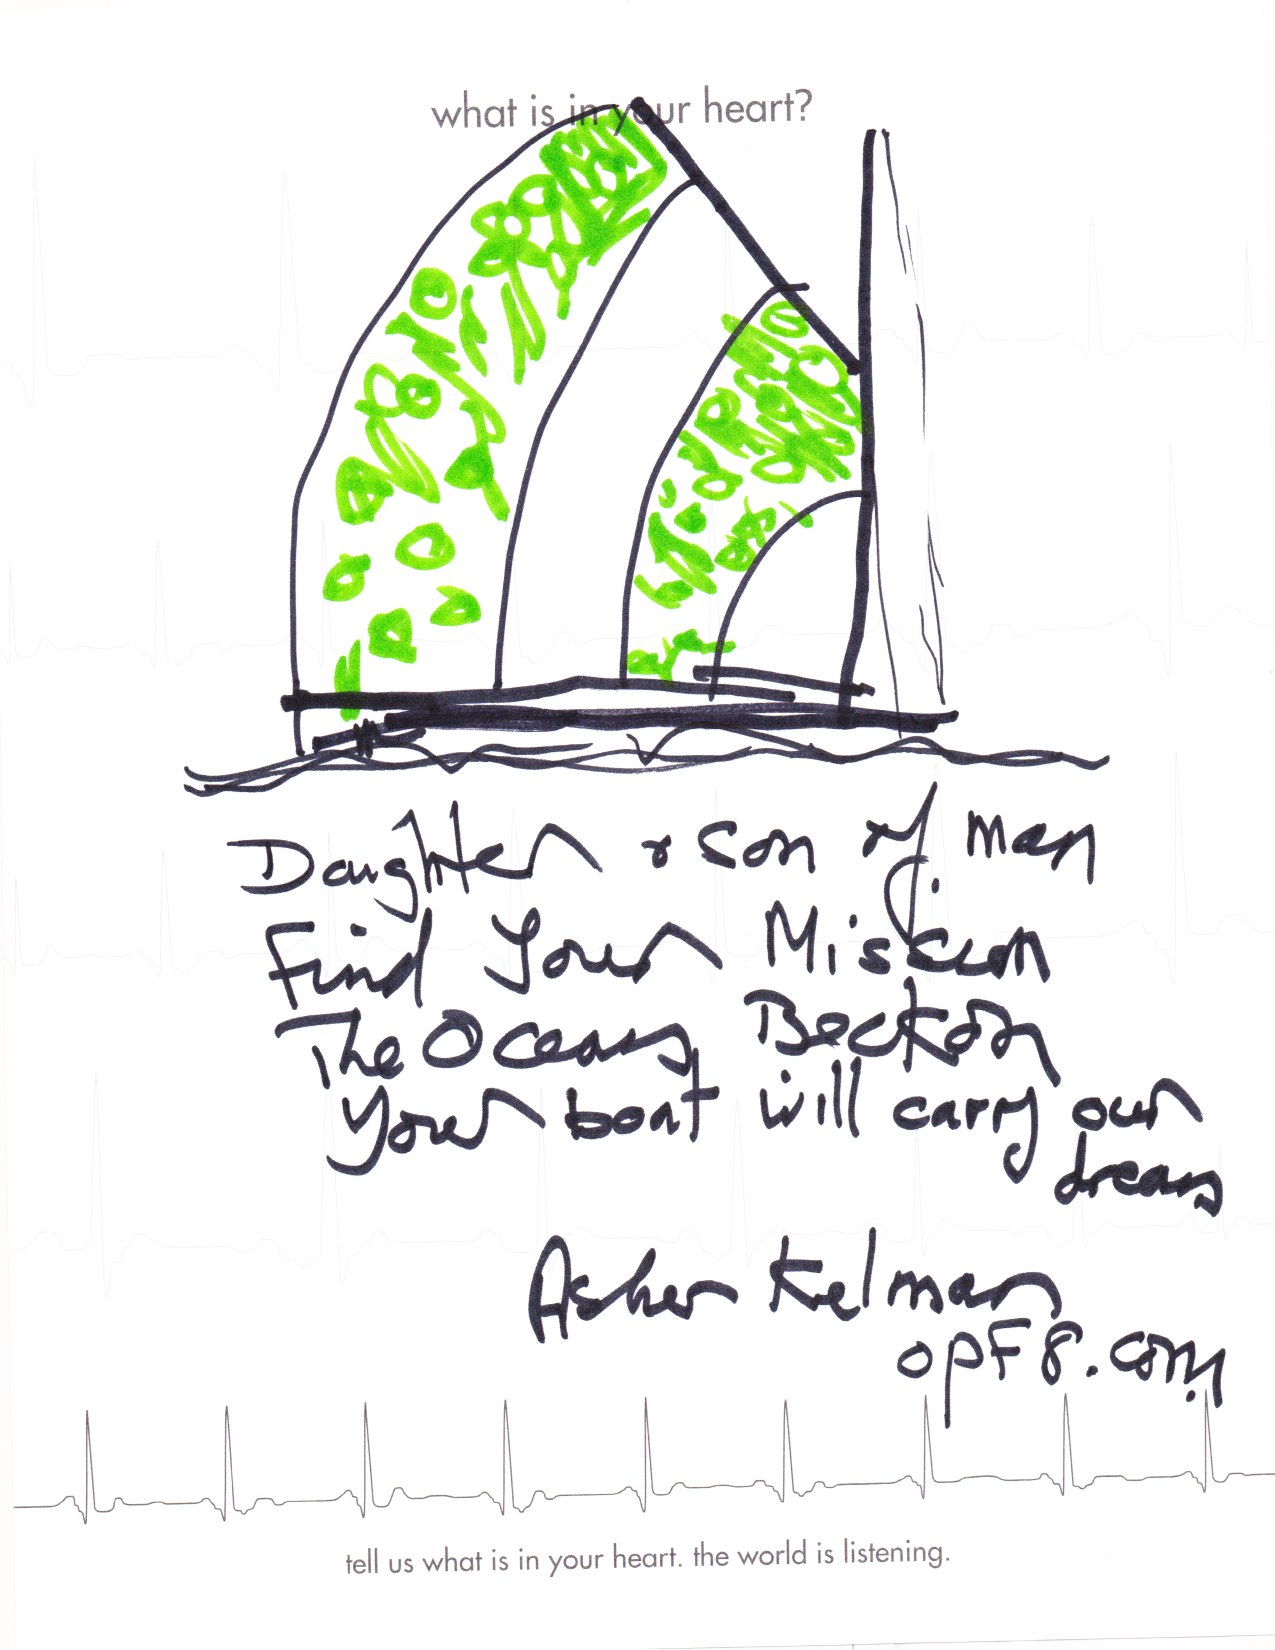 what is in your heart?
Daughter & son of man
Find Your Mission
The Oceans Beckon
Your boat will carry our
dreams
Asher Kelman
opF8.com
tell us what is in your heart. the world is listening.